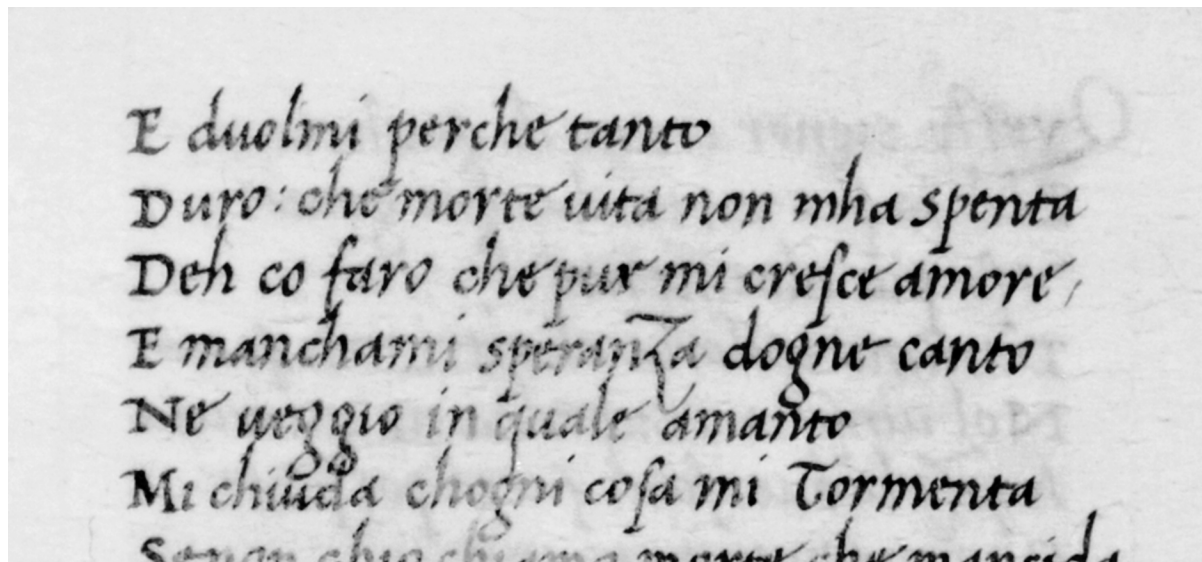 E duolmi perche tanto
Duro: che morte uita non mha spenta
Deh co faro che pur mi creſce amore,
E manchami speranza dogne canto
Ne ueggio in quale amanto
Mi chiuda chogni coſa mi Tormenta
Senon chio chiama morte che mancida